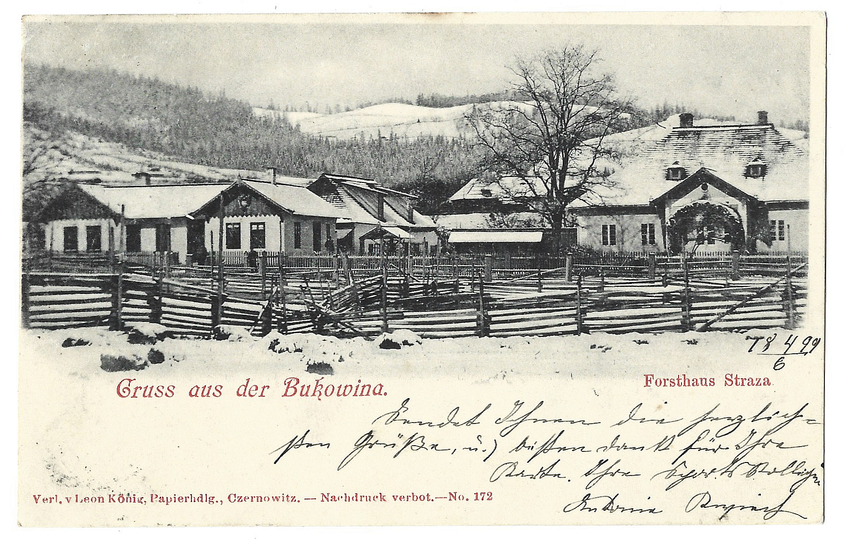 Gruss aus der Bukowina.
Forsthaus Straza
Sendet Ihnen die herzlich=
sten Grüße, u.) besten dank für Ihre
Karte. Ihre Sports Kollegin
Antonie
Verl. v Leon König, Papierhdlg., Czernowitz. — Nachdruck verbot.—No. 172